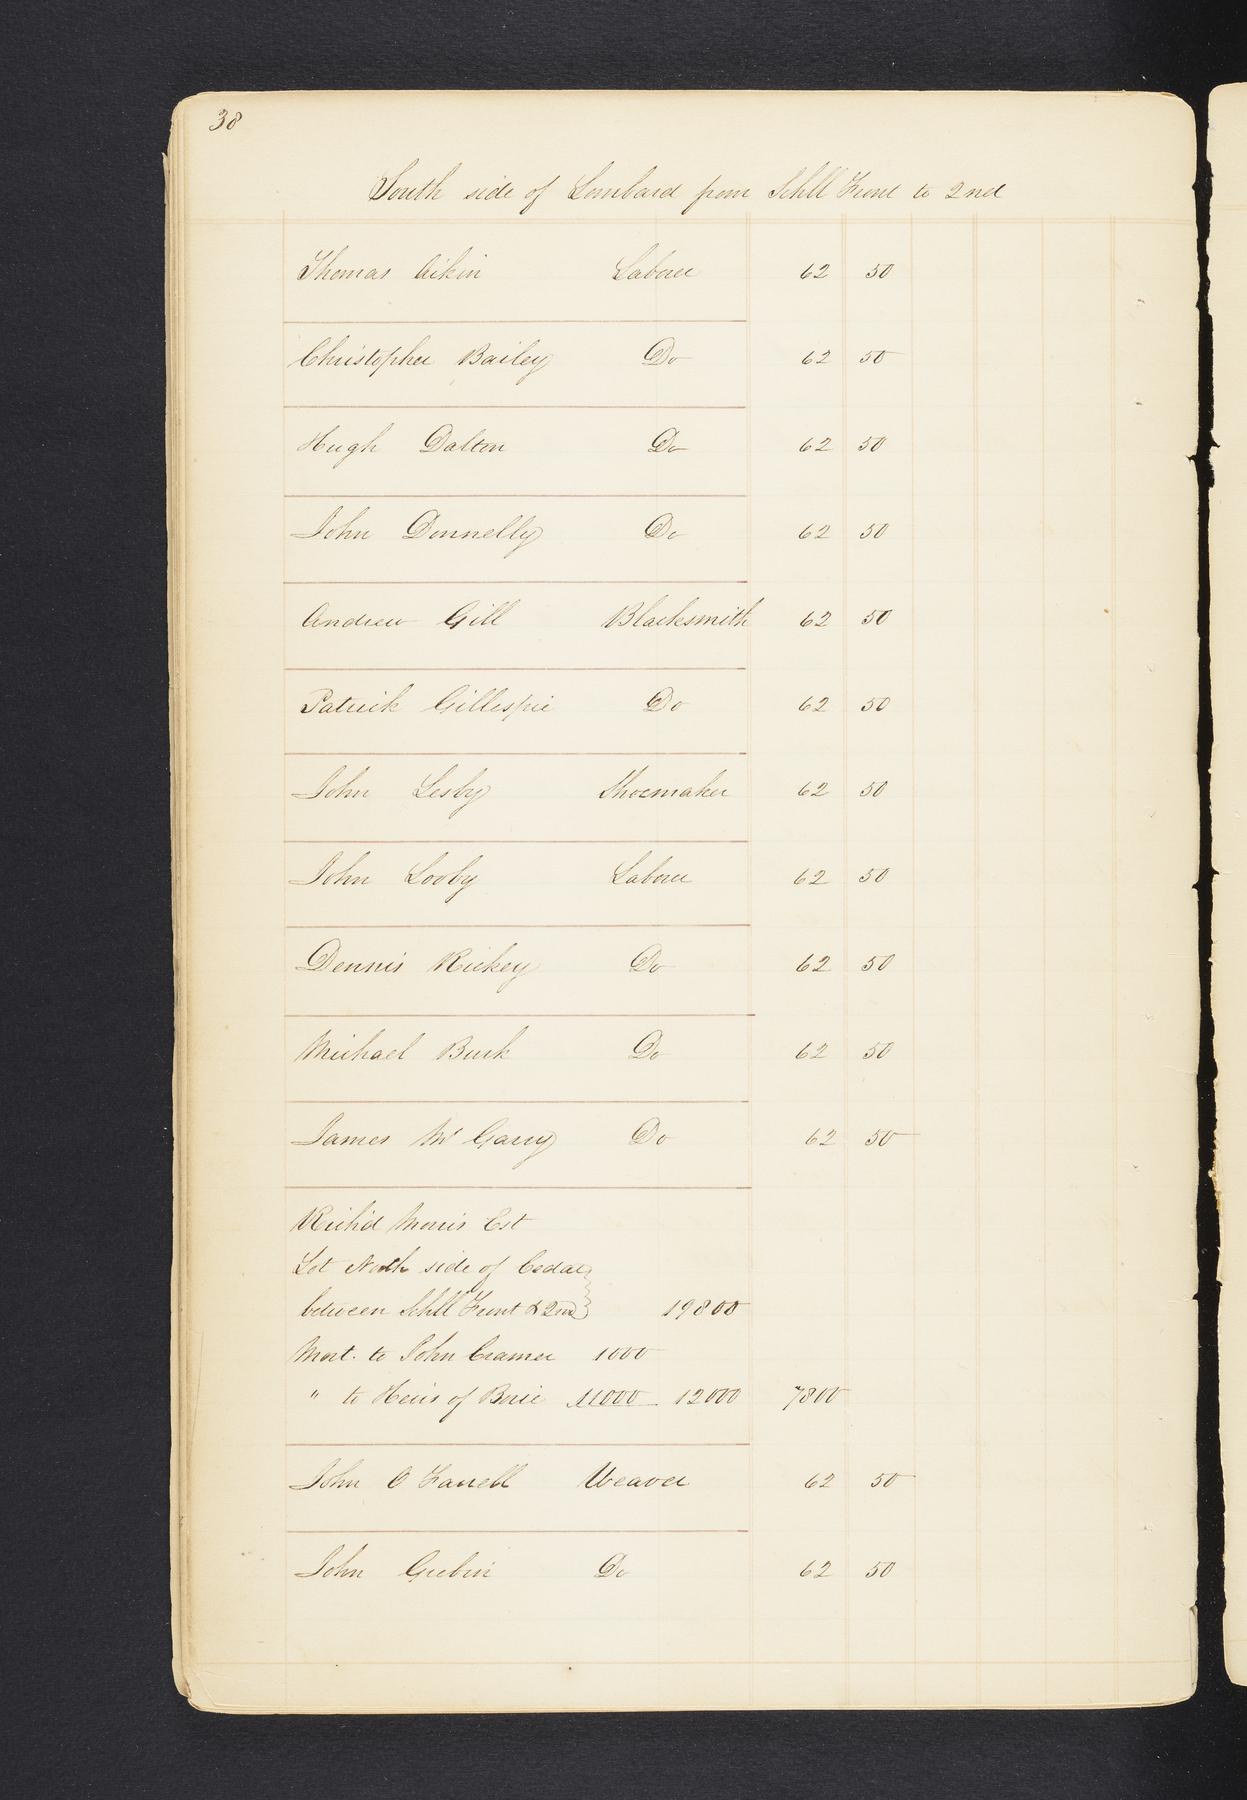 38
South side of Lombard from Schll Front to 2nd
Thomas Aikin Laborer 62 50
Christopher Bailey Do 62 50
Hugh Dalton Do 62 50
John Donnelly Do 62 50
Andrew Gill Blacksmith 62 50
Patrick Gillespie Do 62 50
John Lesby Shoemaker 62 50
John Looby Laborer 62 50
Dennis Rickey Do 62 50
Michael Burk Do 62 50
James Mc Garry Do 62 50
Richd Morris Est
Lot North side of Cedar
between Schll Front & 2nd 19800
Mort. to John Cramer 1000
" to Heirs of Borie 11000 12000 7800
John O Farrell Weaver 62 50
John Do 62 50